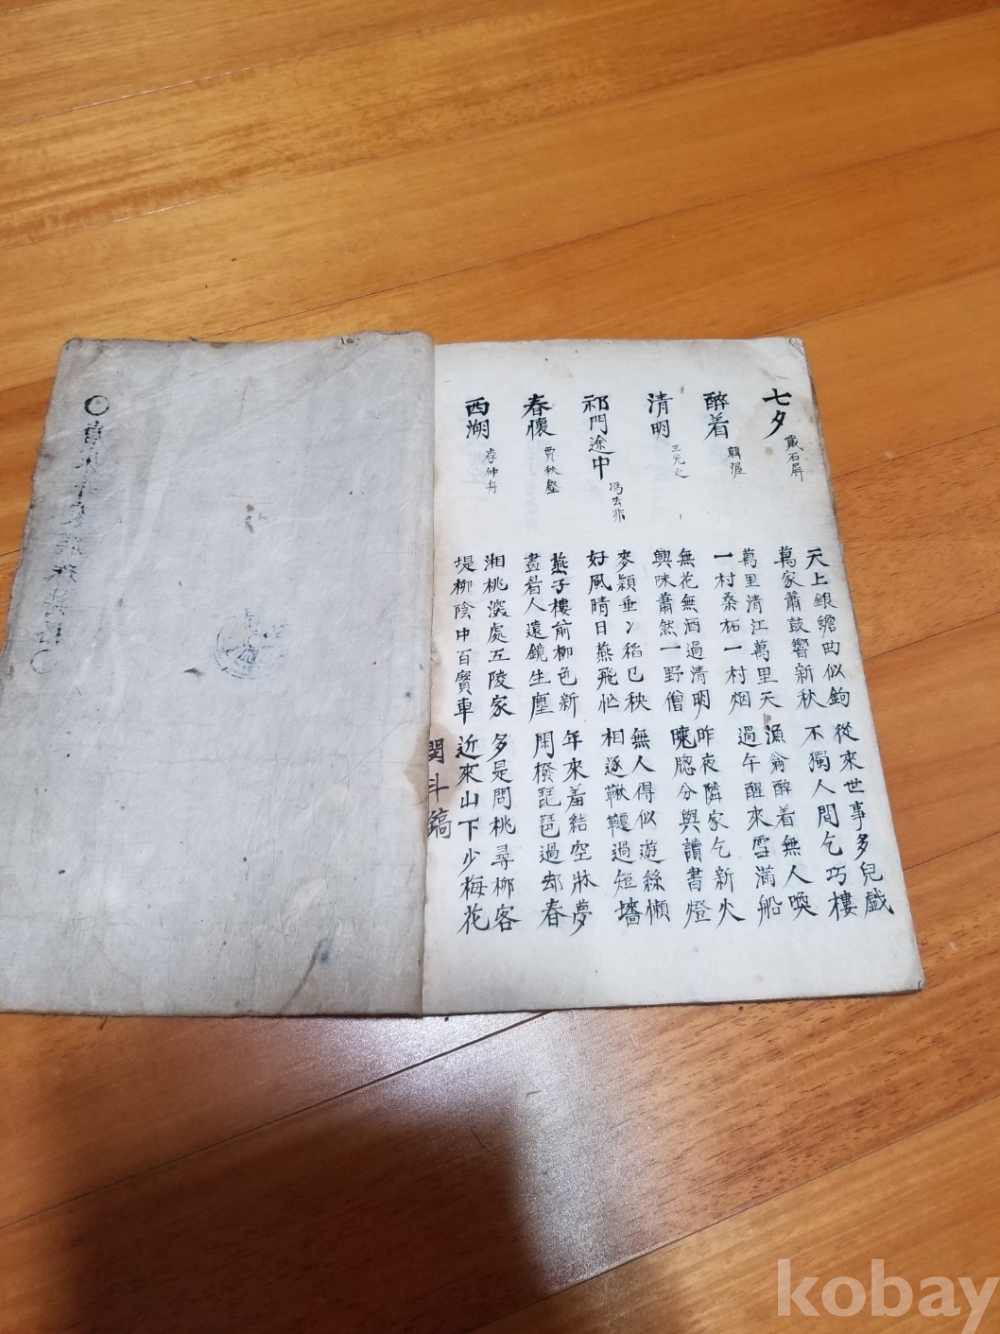 七夕
戴石屏
天上銀蟾曲似鉤
萬家蕭鼓響新秋
從來世事多兒戲
不獨人間乞巧樓
醉着
韓渥
萬里清江萬里天
一村桑柘一村烟
漁翁醉着無人喚
過午醒來雪滿船
清明
王元之
無花無酒過清明
興味蕭然一野僧
昨夜隣家乞新火
曉牕分與讀書燈
祁門途中
馮去非
麥穎垂〻稻已秧
好風晴日燕飛忙
無人得似遊絲懶
相逐鞦韆過短墻
春懷
賈秋壑
燕子樓前柳色新
人遠鏡生塵
年來羞結空牀夢
閑撥琵琶過却春
西湖
李仲舟
湘桃深處五陵家
堤柳陰中百寶車
多是問桃尋柳客
近來山下少梅花
閔斗鎬
kobay